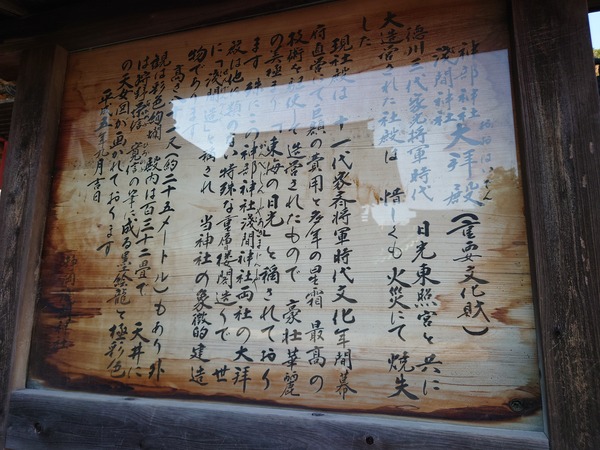 神部神社
浅間神社 大拝殿 (重要文化財)
徳川三代家光将軍時代 日光東照宮と共に
大造営された社殿は 惜しくも火災にて焼失
した
現社殿は 十一代家斉将軍時代文化年間幕
府直営にて巨額の費用と多年の星霜 最高の
技術を駆使して造営されたもので 豪壮華麗
の東海の日光と称されており
ます 殊にこの神部神社浅間神社両社の大拝
殿は他に類のない特殊な重層楼閣造りで世
に浅間造りと称され 当神社の象徴的建造
物であります
高さ 約二十五メートル)もあり外
観は彩色絢爛 殿内は百三十二畳で 天井に
は狩野 寛信の筆に成る墨絵龍と極彩色
の天女図が画かれております
平成 年九月吉日